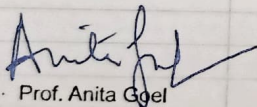 Anita Goel
Prof. Anita Goel